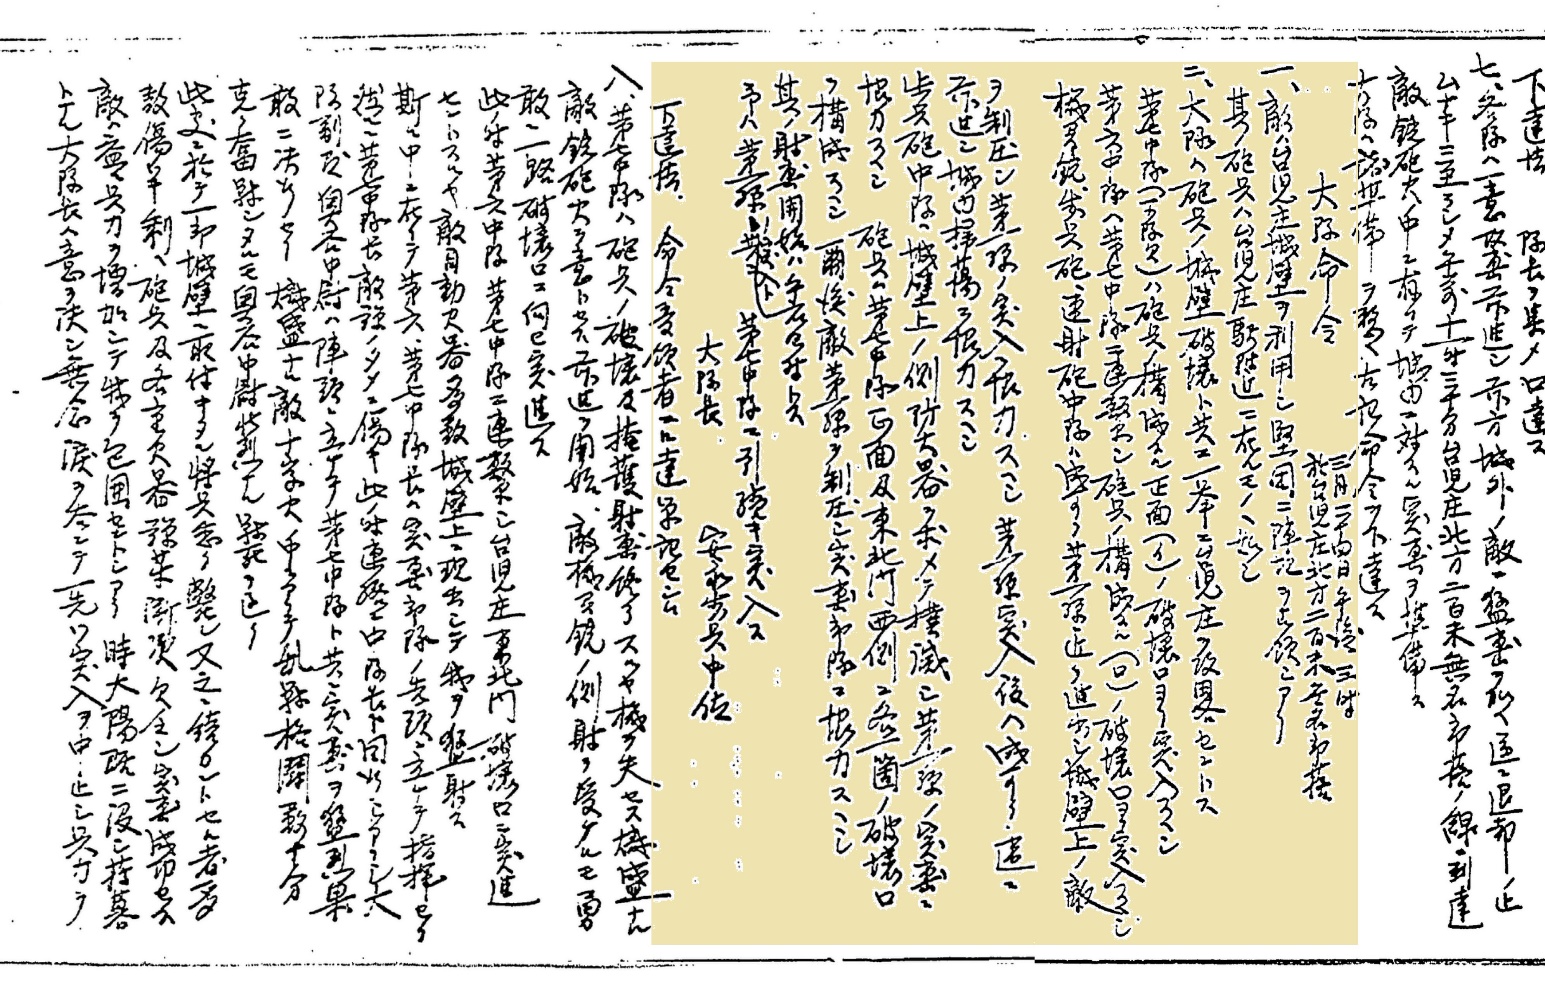 下達法 隊長ヲ集メ口達ス
七、各隊ハ一意攻撃前進シ前方城外ノ敵ハ猛撃ヲ受ケ逐ニ退却ノ止
ムナキニ至ラシメ午前十一時三十分台児庄北方二百米無名部落ノ線ニ到達
敵銃砲火ノ中ニ在リテ城内ニ対スル突撃ヲ準備ス
大隊ハ 準備ヲ整ヘ左記命令ヲ下達ス
大隊命令 三月二十 日午後三時
於台児庄北方二百米無名部落
一、敵ハ台児庄城壁ヲ利用シ堅固ニ陣地ヲ占領シアリ
其ノ砲兵ハ台児庄駅附近ニ在ルモノヽ如シ
二、大隊ハ砲兵ノ城壁破壊ト共ニ一挙ニ台児庄ヲ攻略セントス
第七中隊(一小隊欠)ハ砲兵ノ構成スル正面(イ)ノ破壊口ヨリ突入スヘシ
第六中隊ハ第七中隊ニ連繋シ砲兵構成スル(ロ)ノ破壊口ヨリ突入スヘシ
機関銃歩兵砲速射砲中隊ハ成ルヘク第一線近ク進出シ城壁上ノ敵
ヲ制圧シ第一線ノ突入ニ協力スヘシ 第一線突入後ハ成ルヘク速ニ
前進シ城内掃蕩ニ協力スヘシ
歩兵砲中隊ハ城壁上ノ側防火器ヲ求メテ撲滅シ第一線ノ突撃ニ
協力スヘシ 砲兵ハ第七中隊正面及東北門西側ニ各一箇ノ破壊口
ヲ構成スヘシ 爾後敵第一線ヲ制圧シ突撃部隊ニ協力スヘシ
其ノ射撃開始ハ午后四時トス
予ハ第一線 第七中隊ニ引続キ突入ス
大隊長 安永歩兵中佐
下達法 命令受領者ニ口達筆記セシム
八、第七中隊ハ砲兵ノ破壊及掩護射撃終ルスルヤ機ヲ失セス熾盛ナル
敵銃砲火ヲ意トセス前進ヲ開始 敵機関銃ノ側射ヲ受クルモ勇
敢ニ一路破壊口ニ向ヒ突進ス
此ノ時第六中隊第七中隊ニ連繋シ台児庄東北門破壊口ニ突進
セントスルヤ敵自動火器多数城壁上ニ現出シテ我ヲ猛射ス
斯ル中ニ在リテ第六、第七中隊長ハ突撃部隊ノ先頭ニ立チテ指揮セリ
続ニ第七中隊長敵弾ノタメニ傷キ此ノ時 中隊長ト同行シアリシ大
隊副官奥谷中尉ハ陣頭ニ立チテ第七中隊ト共ニ突撃ヲ猛烈果
敢ニ決行セリ 熾盛ナル敵十字火中ニアリテ乱戦格闘数十分
克ク奮戦シタルモ奥谷中尉壮烈ナル戦死ヲ遂ク
此処ニ於テ一部城壁ニ取付キタル将兵悉ク斃レ又之ニ続カントセル者多
数傷キ剰ヘ砲兵及各重火器弾薬漸次欠乏シ突撃成功セス
敵ハ益々兵力ヲ増加シテ我ヲ包囲セントシアリ 時大陽既ニ没シ薄暮
トナル大隊長ハ意ヲ決シ無念涙ヲ呑ンテ一先ツ突入ヲ中止シ兵力ヲ